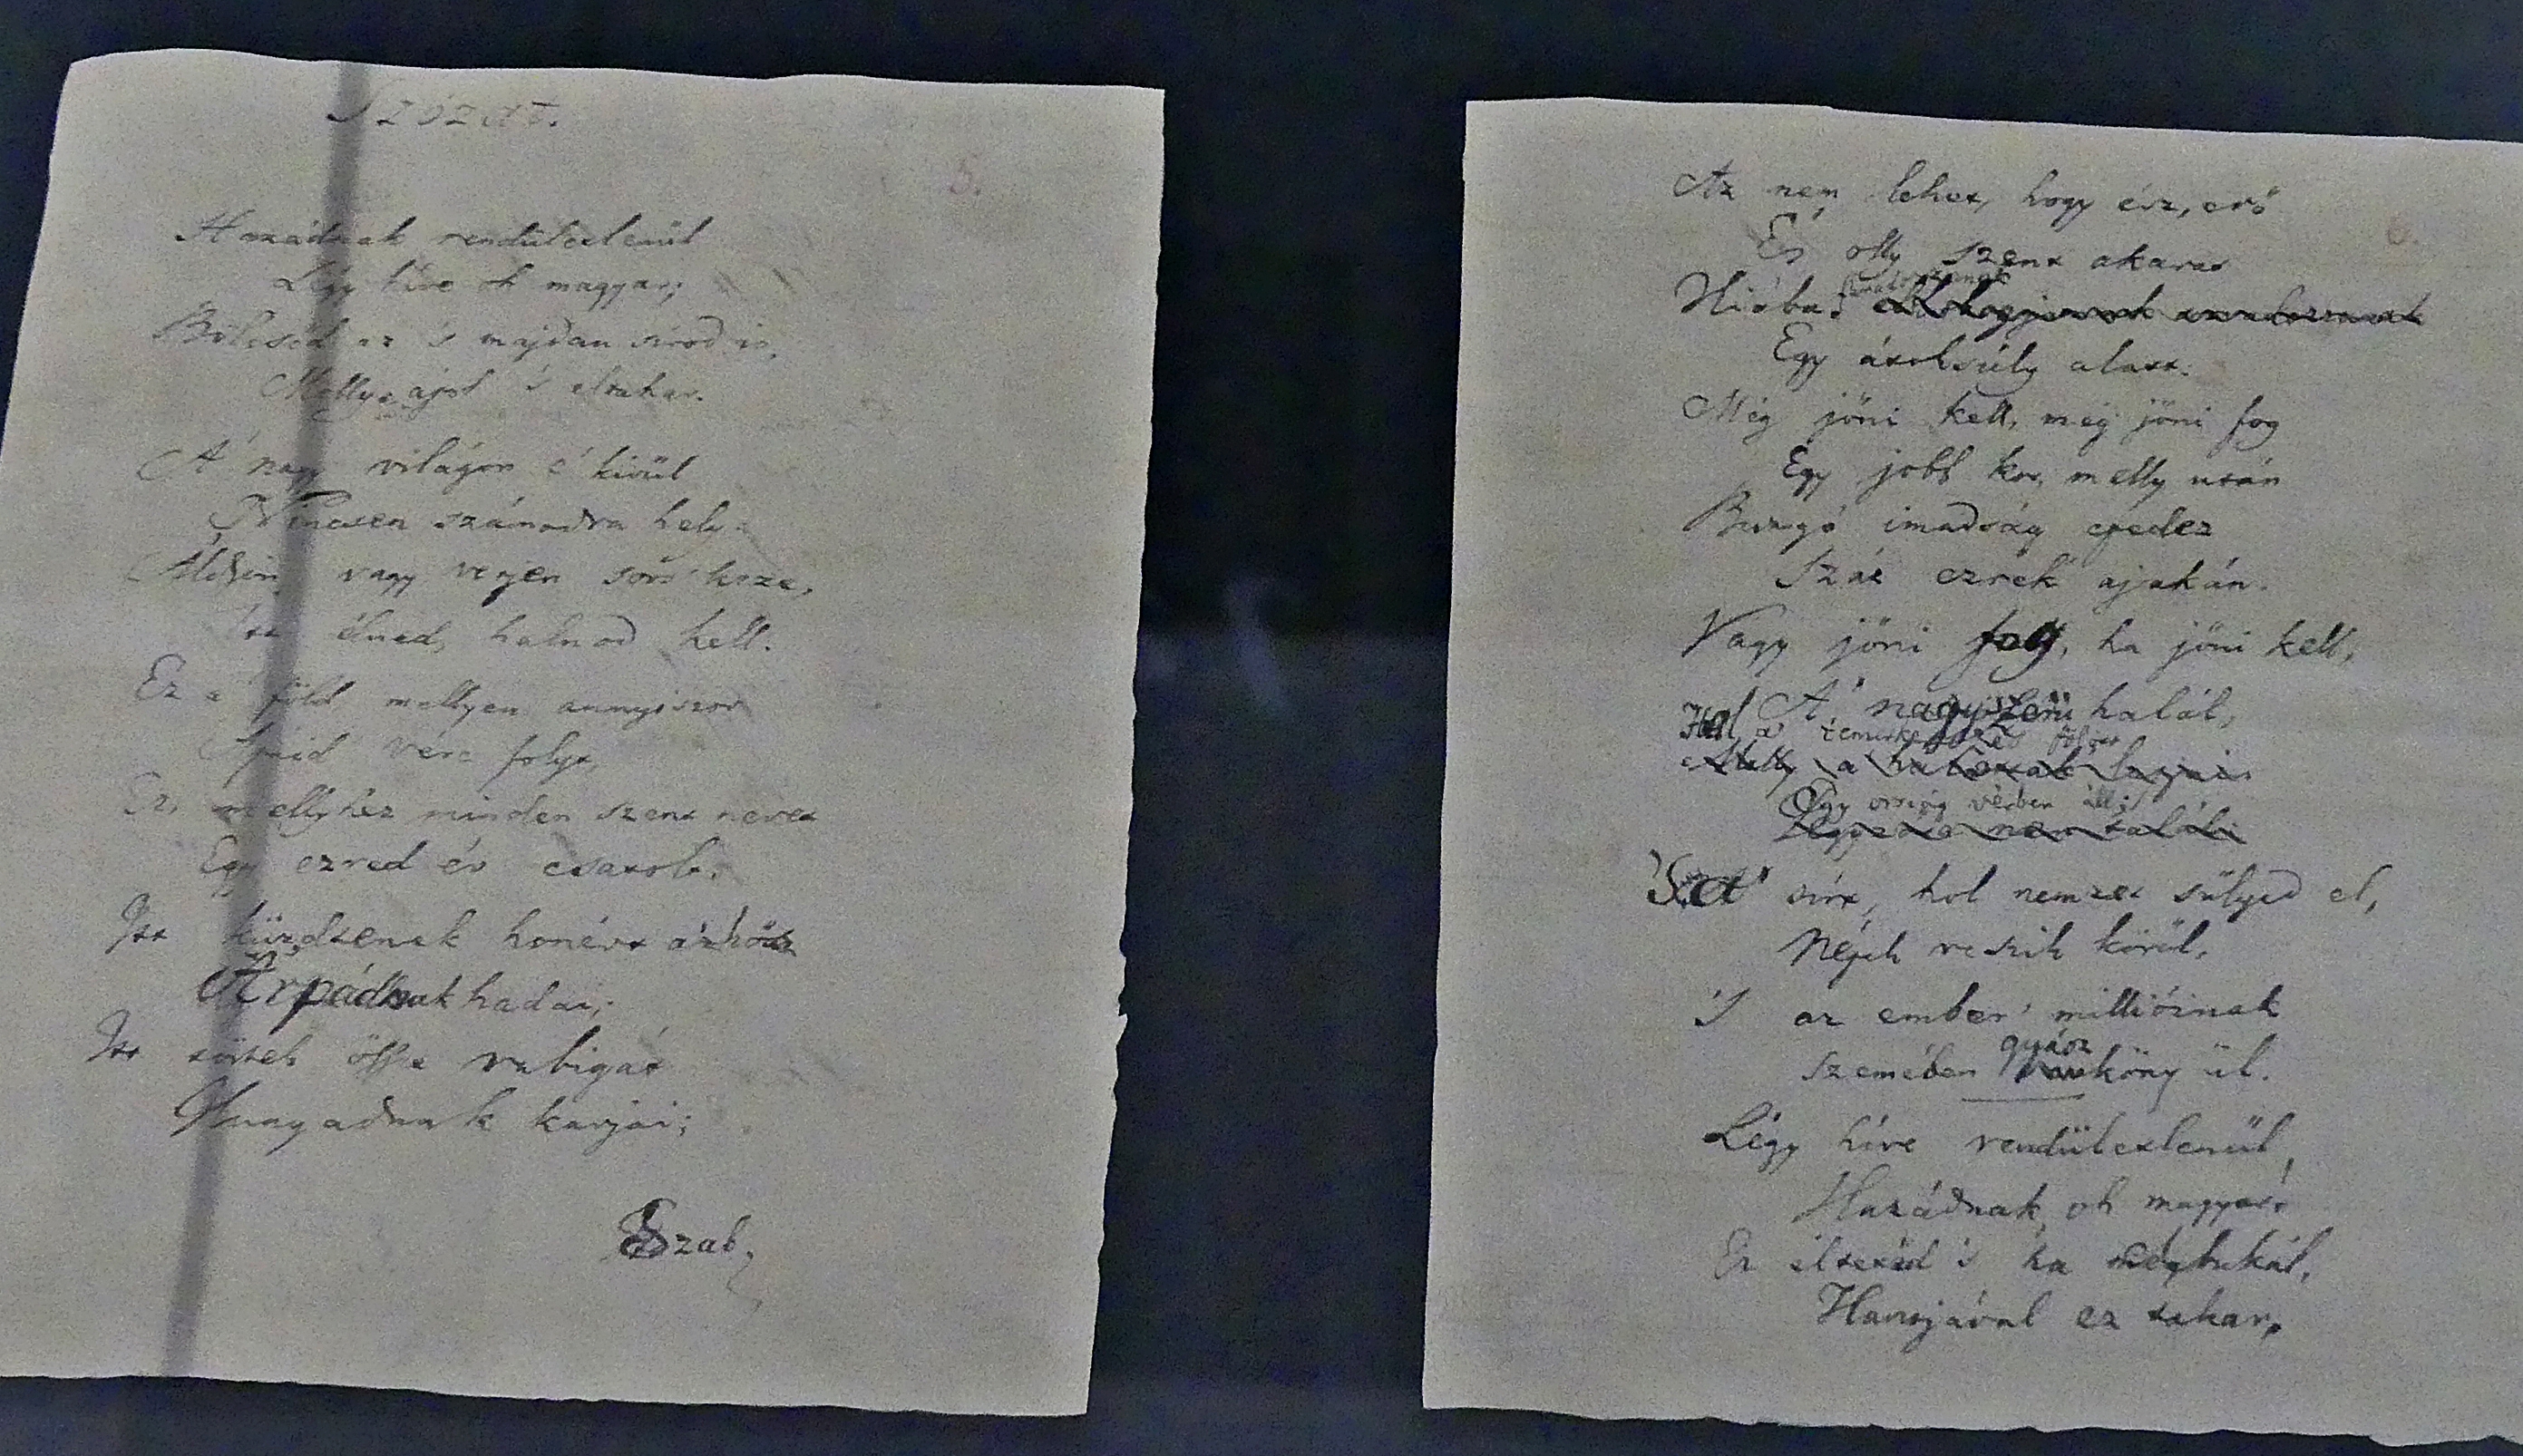 SZÓZAT.
5.
Hazádnak rendületlenül
Légy híve oh magyar;
Bölcsőd az 's majdan sírod is,
Melly ápol 's eltakar.
A' nagy világon e' kivül
Nincsen számodra hely;
Áldjon vagy verjen sors' keze,
Itt élned, halnod kell.
Ez a' föld mellyen annyiszor
Apáid' vére folyt,
Ez, mellyhez minden szent nevet
Egy ezred év csatolt.
Itt küzdtenek honért a' hős
Árpádnak hadai;
Itt törtek össze rabigát
Hunyadnak karjai;
Szab,
6.
Az nem lehet, hogy ész, erő
És olly szent akarat
Hiába
Egy átoksúly alatt.
Még jőni kell, még jőni fog
Egy jobb kor, melly után
Buzgó imadság epedez
Száz ezrek' ajakán.
Vagy jőni fog, ha jőni kell,
A' nagyszerü halál,
Hol a' temetkezés fölött
Egy ország vérben áll.
'S a' sírt, hol nemzet sülyed el,
Népek veszik körül,
'S az ember' millióinak
gyász
Szemében köny ül.
Légy híve rendületlenül,
Hazádnak, oh magyar:
Ez éltetőd 's ha elbukál,
Hantjával ez takar.